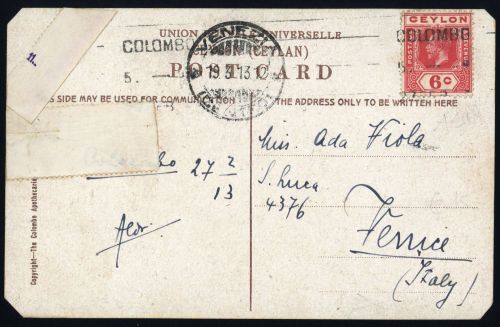 UNION UNIVERSELLE
(CEYLAN)
POST CARD
COLOMBO
5.
VENEZIA
19 3 13
(CENTRO)
CEYLON
POSTAGE
6c
COLOMBO
THIS SIDE MAY BE USED FOR COMMUNICATION
THE ADDRESS ONLY TO BE WRITTEN HERE
27 2/13
Miss. Ada Viola
S. Luca
4376
Venice
(Italy)
Copyright—The Colombo Apothecaries